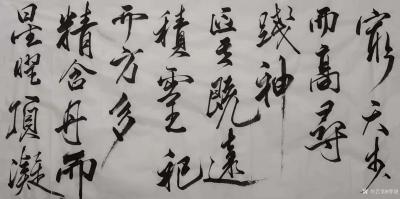 窮天步
而高尋
踐神
區其既遠
積靈祀
而方多
精含丹而
星曜頂凝